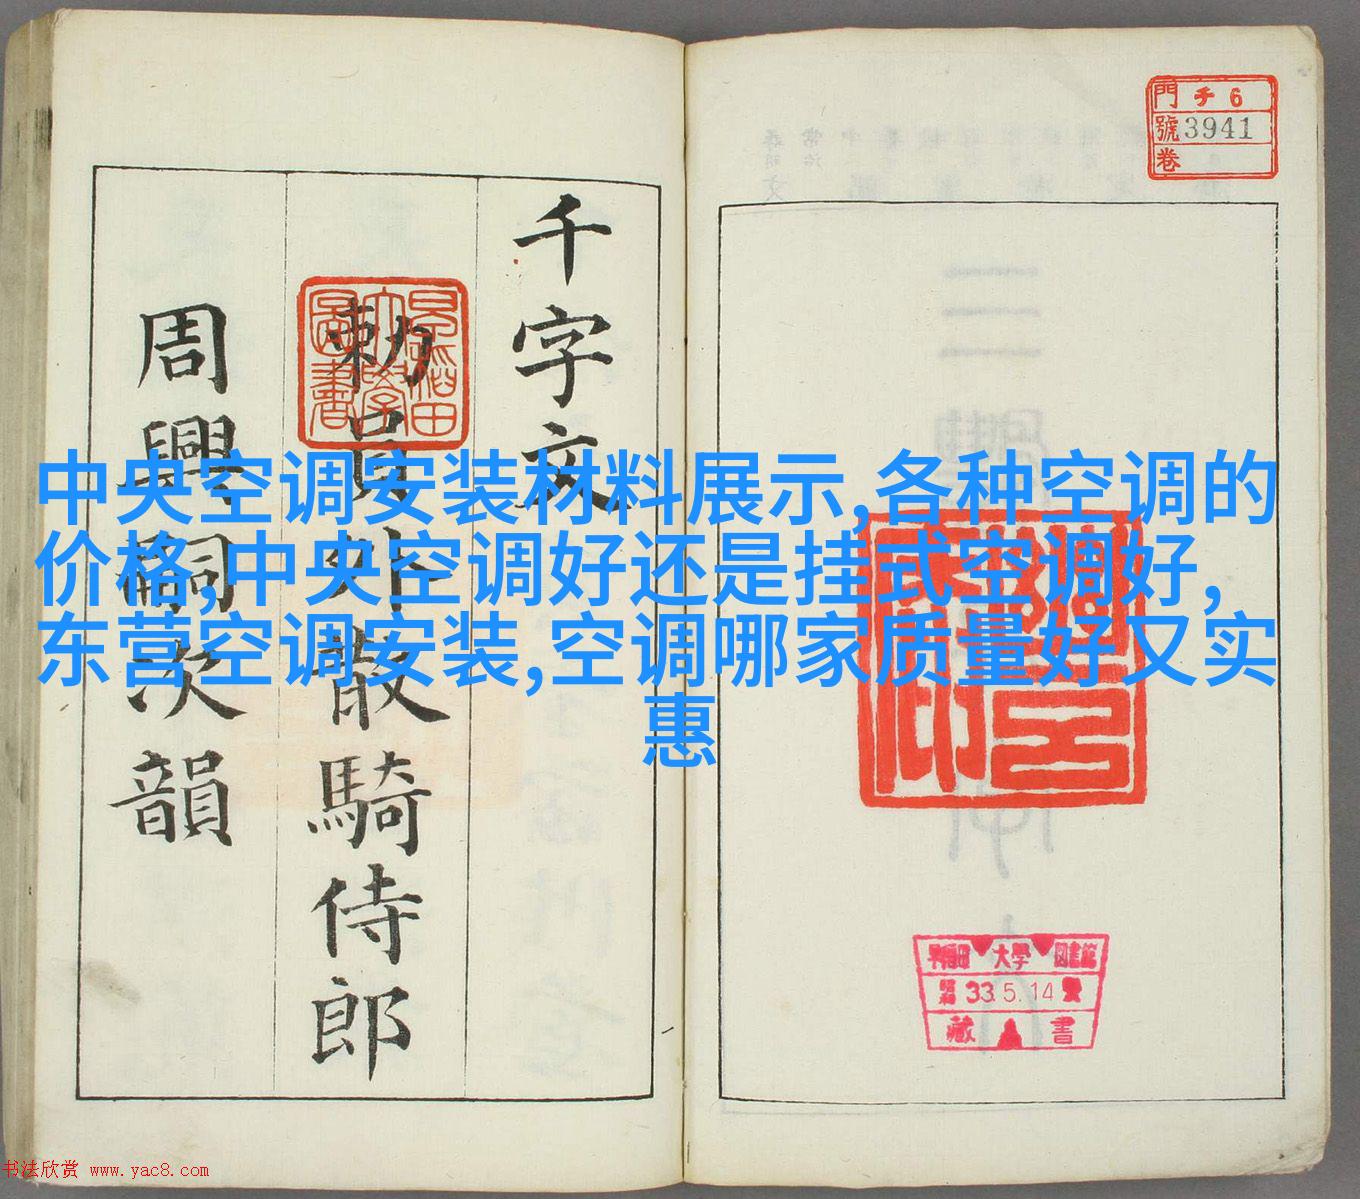 門 チ 6
號 3941
卷
千字文
勅員外散騎侍郎
周興嗣次韻
早稲田大學圖書
中央空调安装材料展示,各种空调的
价格,中央空调好还是挂式空调好,
东营空调安装,空调哪家质量好又实
惠
早稲田大學圖書館
昭和33.5.14
藏書
书法欣赏 www.yac8.com